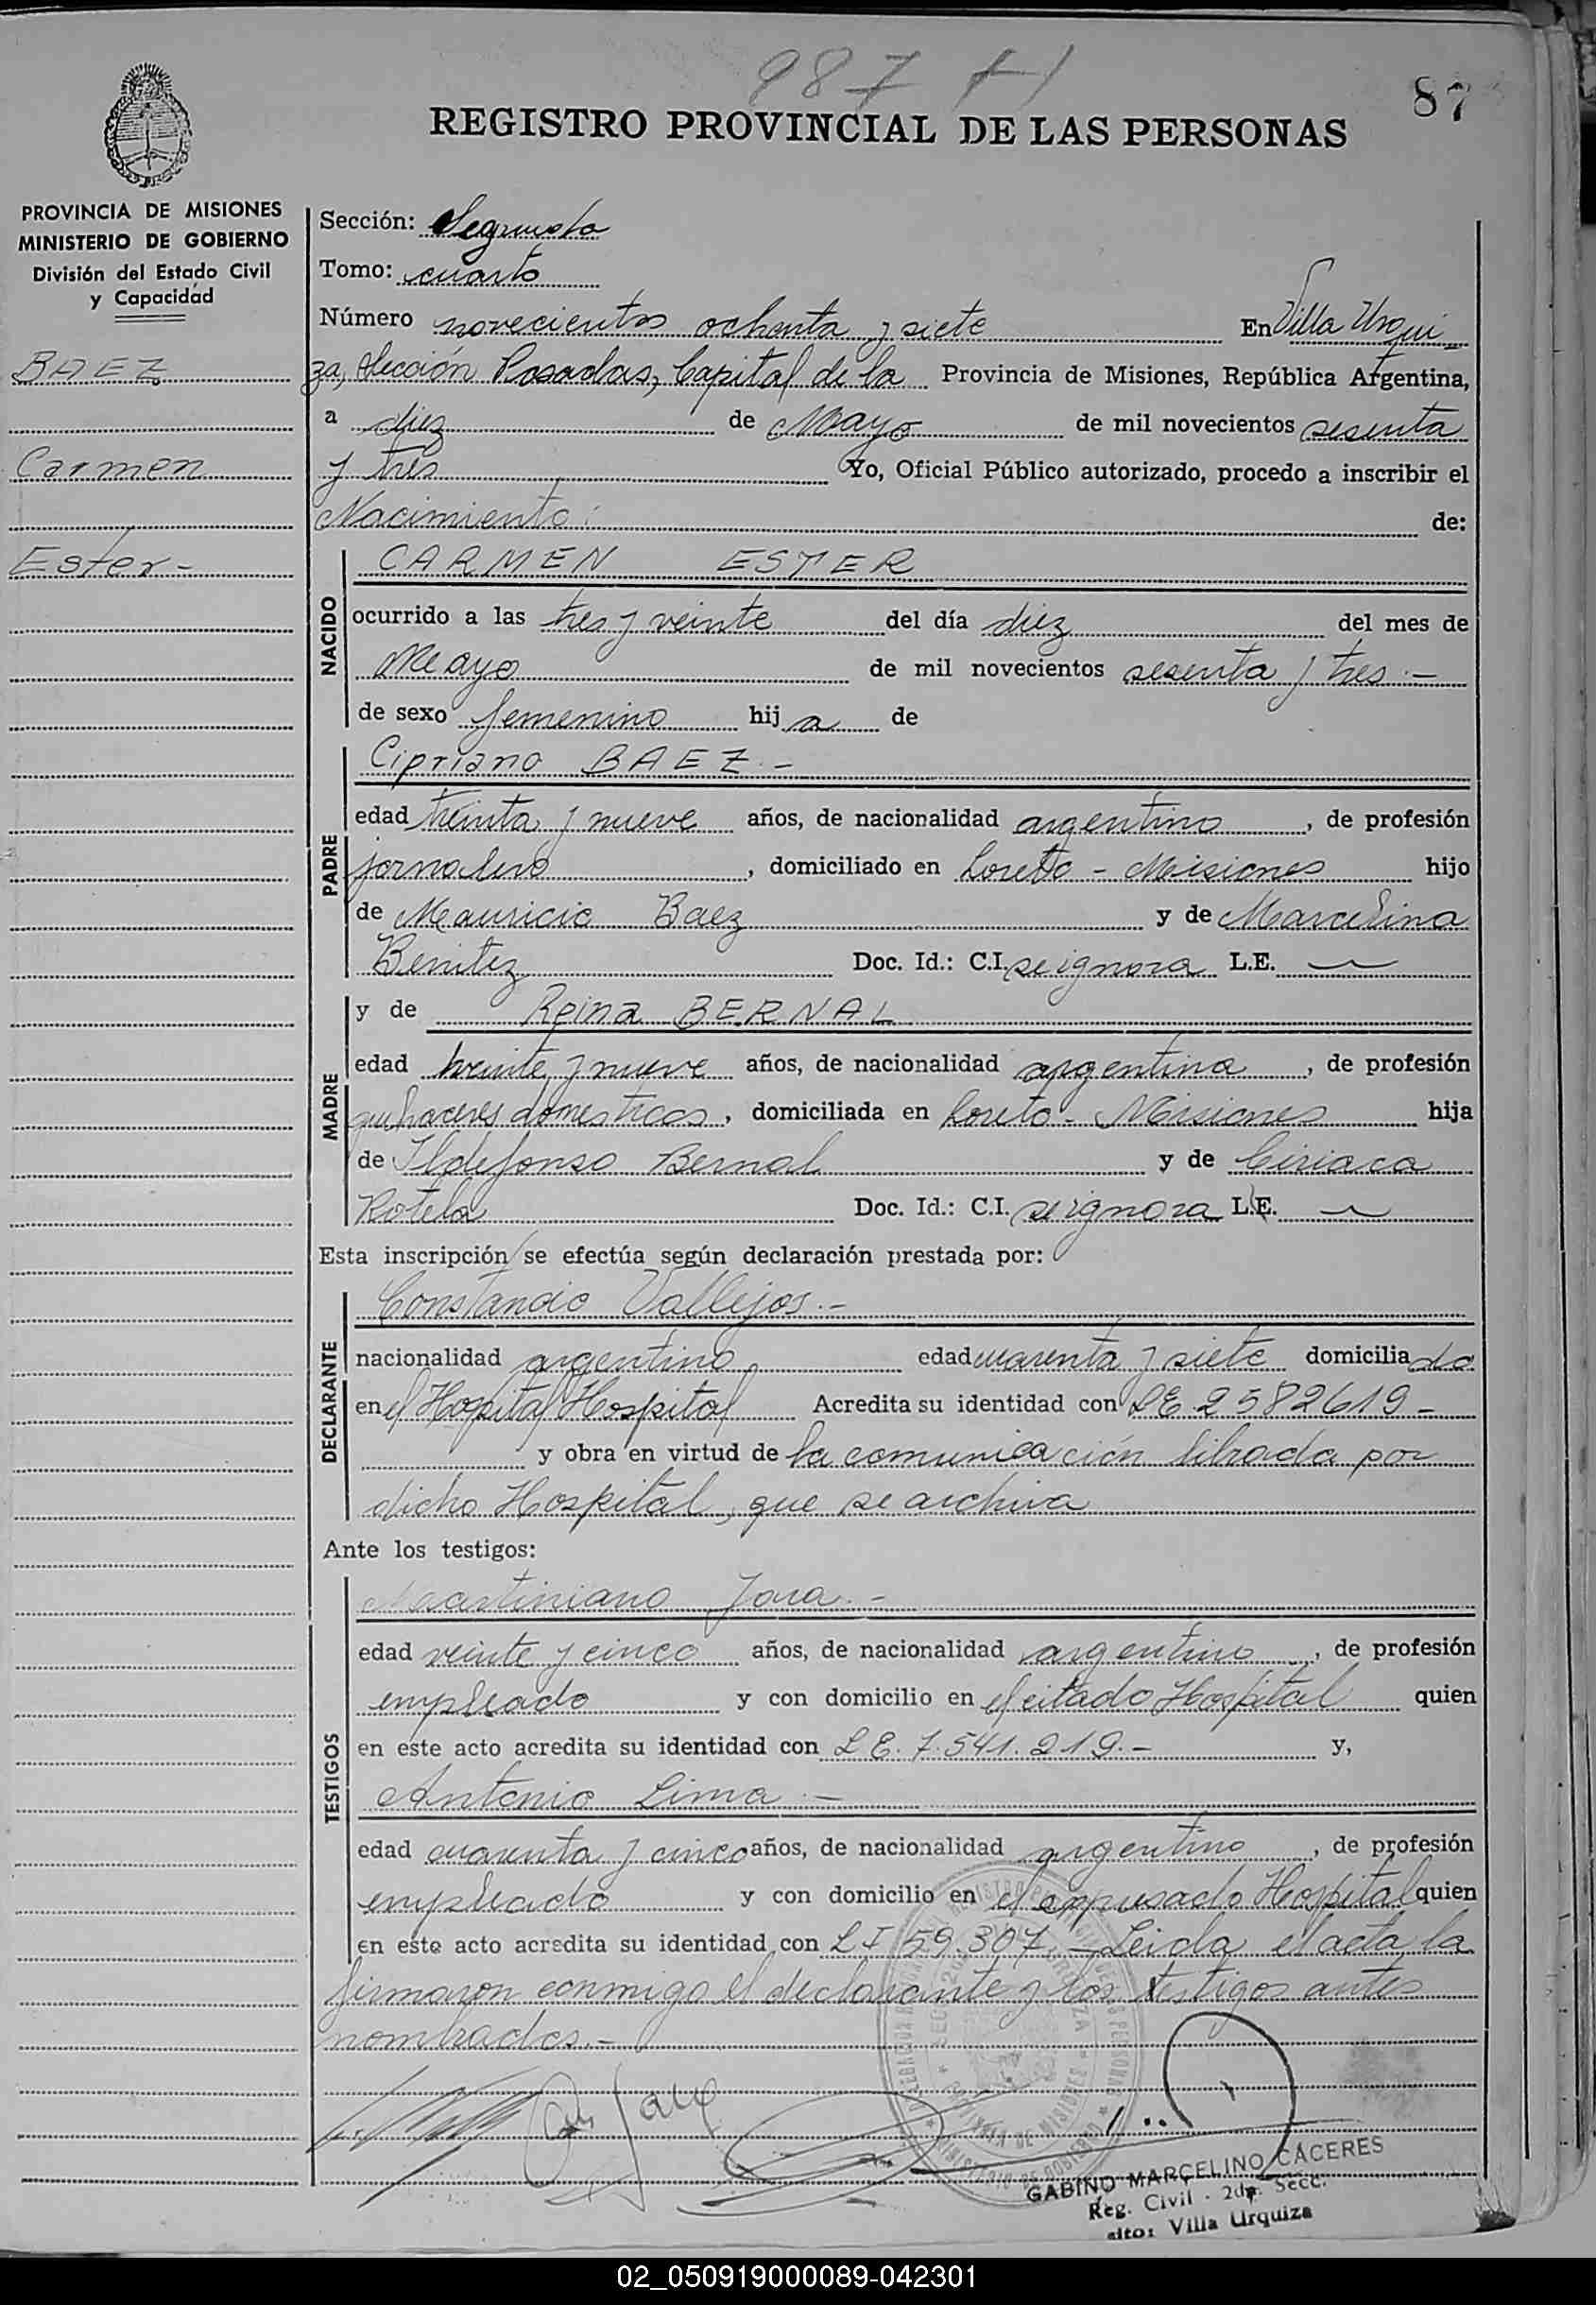 987
87
REGISTRO PROVINCIAL DE LAS PERSONAS
PROVINCIA DE MISIONES
MINISTERIO DE GOBIERNO
División del Estado Civil
y Capacidad
BAEZ
Carmen
Ester -
Sección: Segunda
Tomo: cuarto
Número novecientos ochenta y siete En Villa Urqui
za, Sección Posadas, Capital de la Provincia de Misiones, República Argentina,
a diez de Mayo de mil novecientos sesenta
y tres Yo, Oficial Público autorizado, procedo a inscribir el
Nacimiento: de:
NACIDO
CARMEN ESTER
ocurrido a las tres y veinte del día diez del mes de
Mayo de mil novecientos sesenta y tres.-
de sexo femenino hija de
PADRE
Cipriano BAEZ.-
edad treinta y nueve años, de nacionalidad argentino, de profesión
jornalero, domiciliado en Loreto - Misiones hijo
de Mauricio Baez y de Marcelina
Benitez Doc. Id.: C.I. se ignora L.E. —
MADRE
y de Reina BERNAL
edad treinta y nueve años, de nacionalidad argentina, de profesión
quehaceres domesticos, domiciliada en Loreto - Misiones hija
de Ildefonso Bernal y de Ciriaca
Rotela Doc. Id.: C.I. se ignora L.E. —
Esta inscripción se efectúa según declaración prestada por:
DECLARANTE
Constancio Vallejos.-
nacionalidad argentino edad cuarenta y siete domiciliado
en el Hospital Hospital Acredita su identidad con LE 2582619-
y obra en virtud de la comunicación librada por
dicho Hospital, que se archiva
Ante los testigos:
TESTIGOS
Martiniano Jara.-
edad veinte y cinco años, de nacionalidad argentino, de profesión
empleado y con domicilio en el citado Hospital quien
en este acto acredita su identidad con L E. 7.541.219.- y,
Antonio Lima.-
edad cuarenta y cinco años, de nacionalidad argentino, de profesión
empleado y con domicilio en el expresado Hospital quien
en este acto acredita su identidad con L I 59.307.- Leida el acta la
firmaron conmigo el declarante y los testigos antes
nombrados.-
GABINO MARCELINO CÁCERES
Reg. Civil - 2da. Secc.
Villa Urquiza
02_050919000089-042301